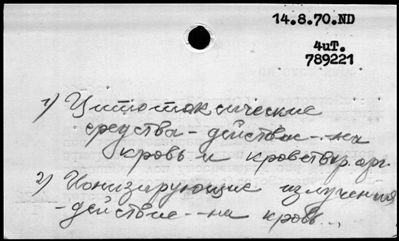 14.8.70.ND
4uT.
789221
1) Цитотоксические
средства - действие - на
кровь и кроветвор. орг.
2) Ионизирующие излучения
- действие - на кровь...